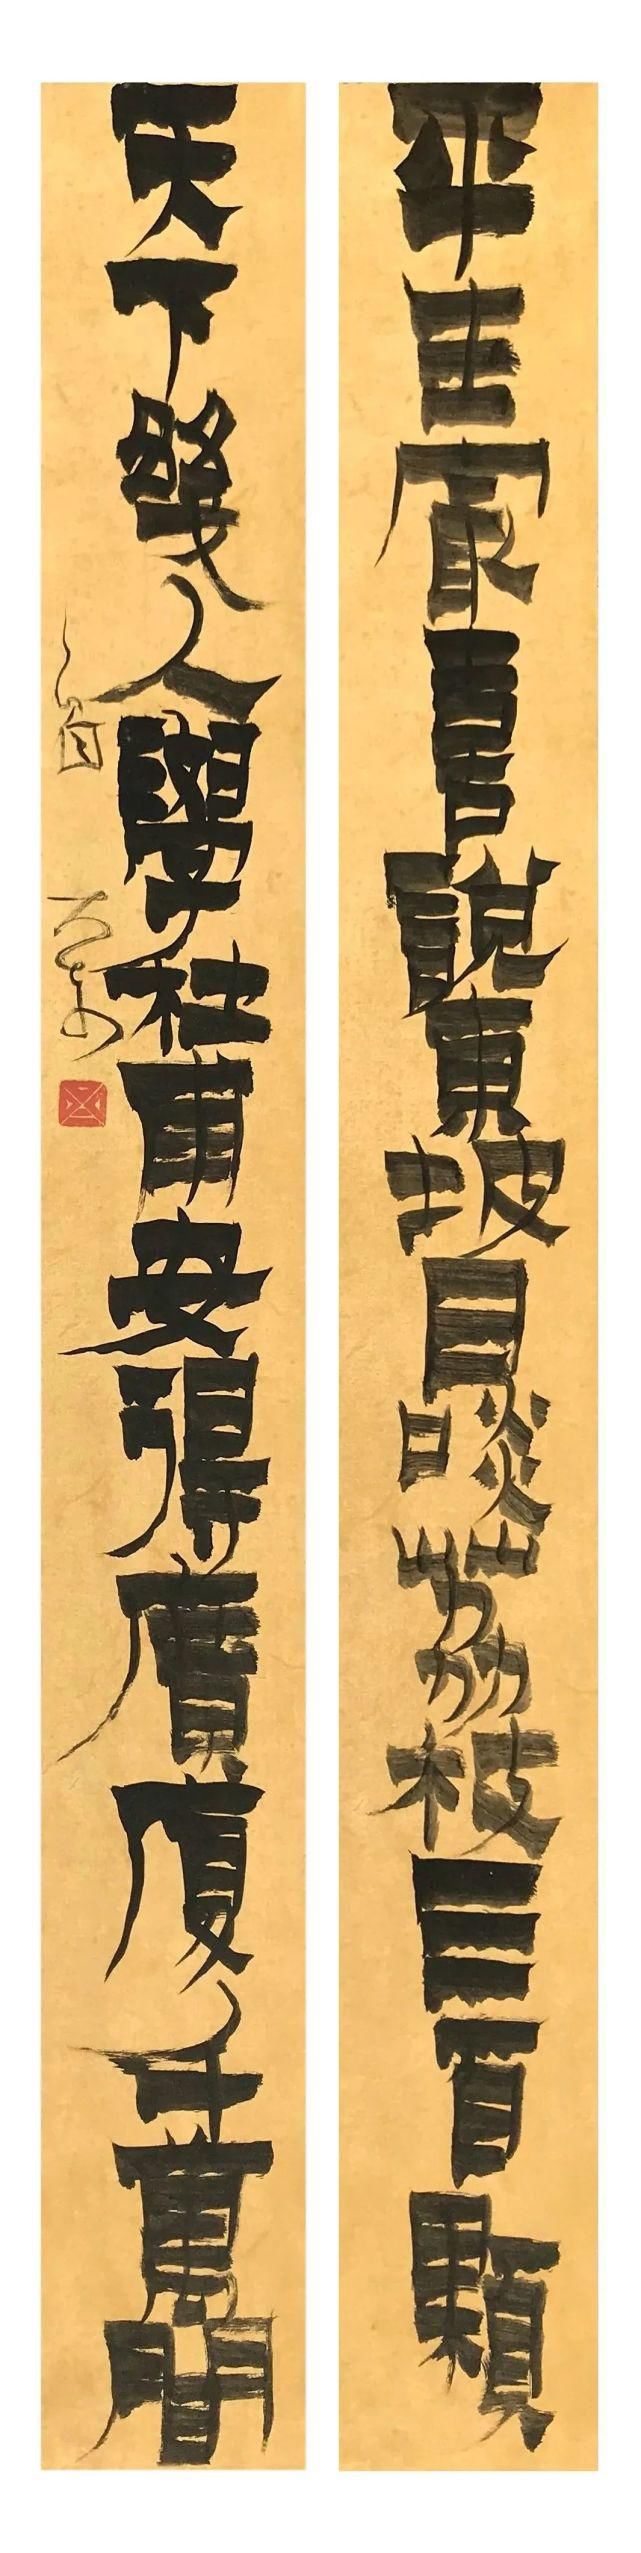 平生最喜說東坡日啖荔枝三百顆
天下幾人學杜甫安得廣廈千萬間